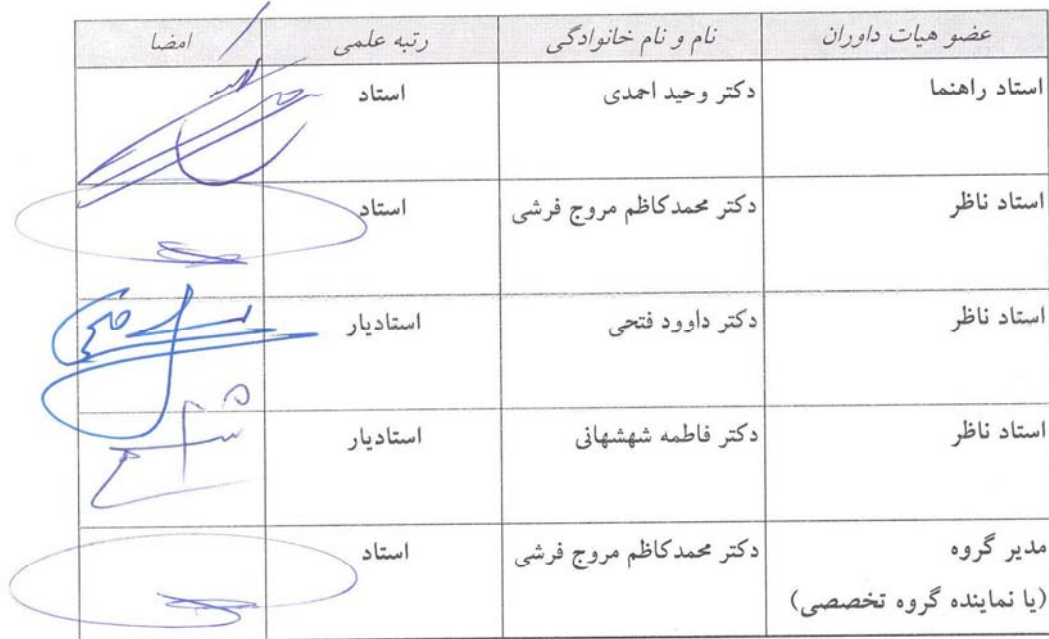 عضو هیات داوران نام و نام خانوادگی رتبه علمی امضا
استاد راهنما دکتر وحید احمدی استاد
استاد ناظر دکتر محمدکاظم مروج فرشی استاد
استاد ناظر دکتر داوود فتحی استادیار
استاد ناظر دکتر فاطمه شهشهانی استادیار
مدیر گروه دکتر محمدکاظم مروج فرشی استاد
(یا نماینده گروه تخصصی)